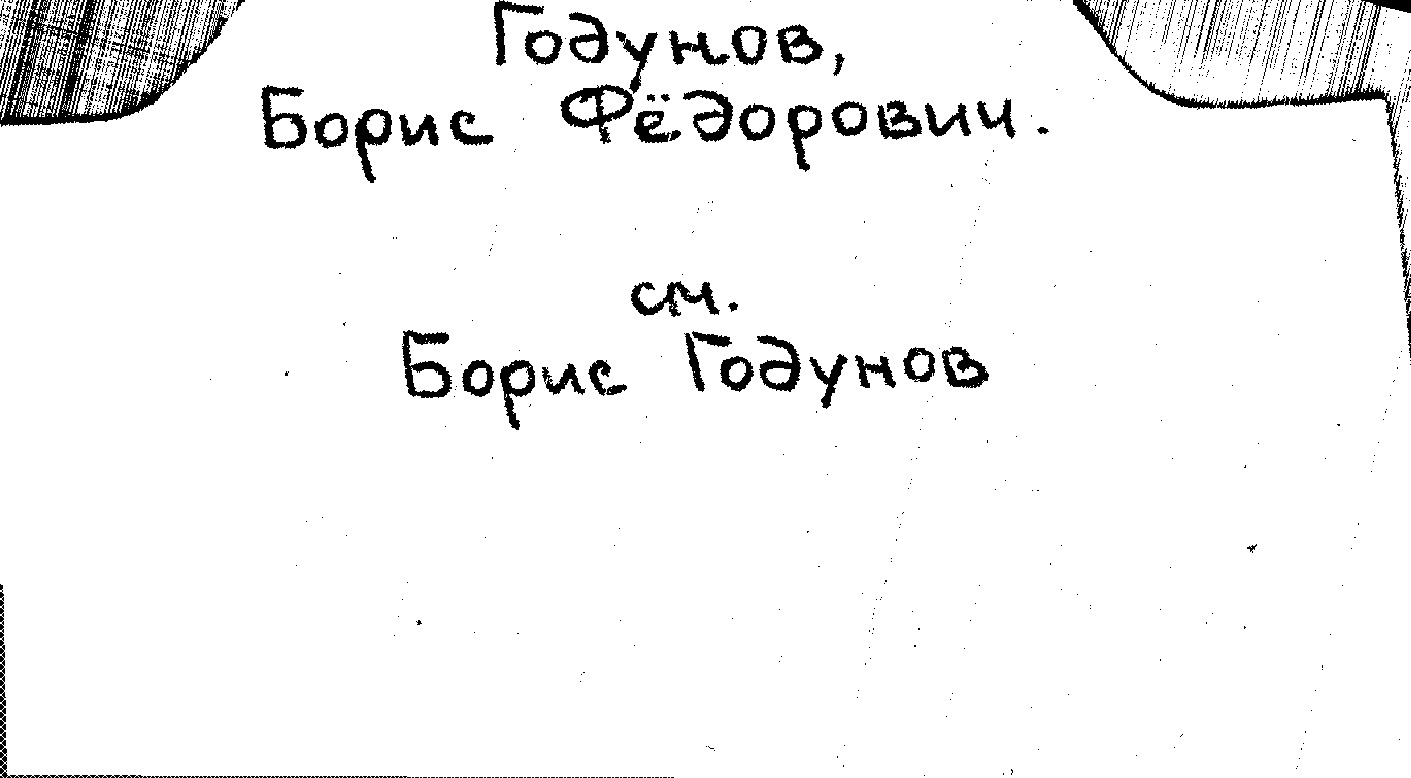 Годунов,
Борис Фёдорович.
см.
Борис Годунов